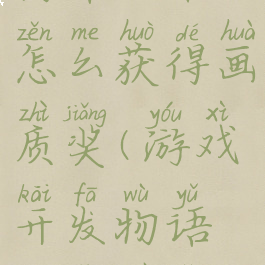 zěn me huò dé huà
怎么获得画
zhì jiǎng yóu xì
质奖(游戏
kāi fā wù yǔ
开发物语